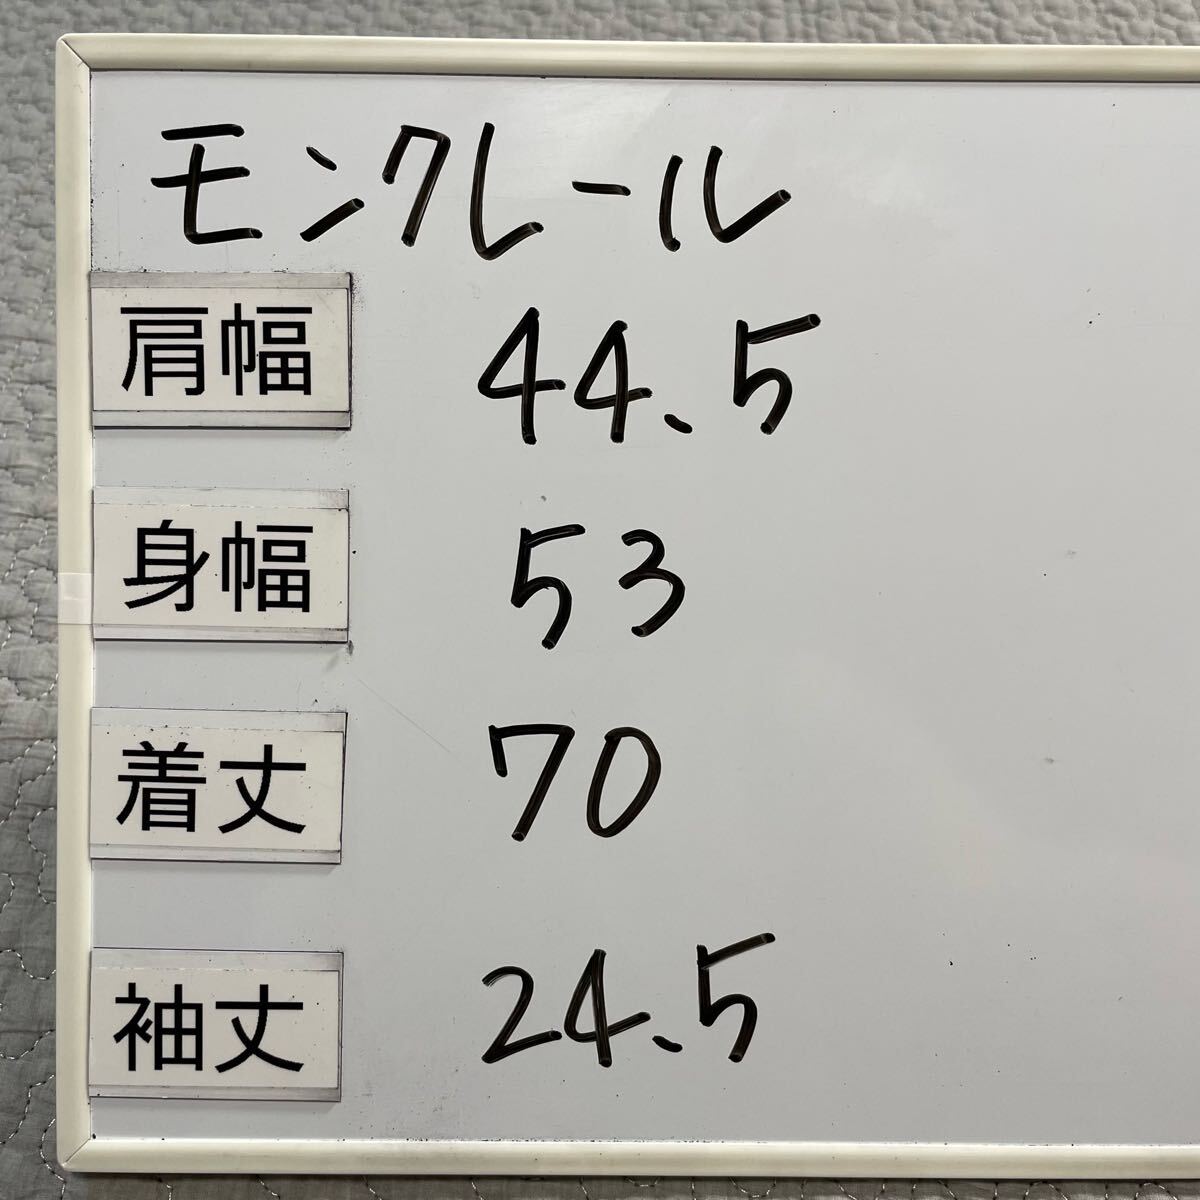 モンクレール
肩幅 44.5
身幅 53
着丈 70
袖丈 24.5